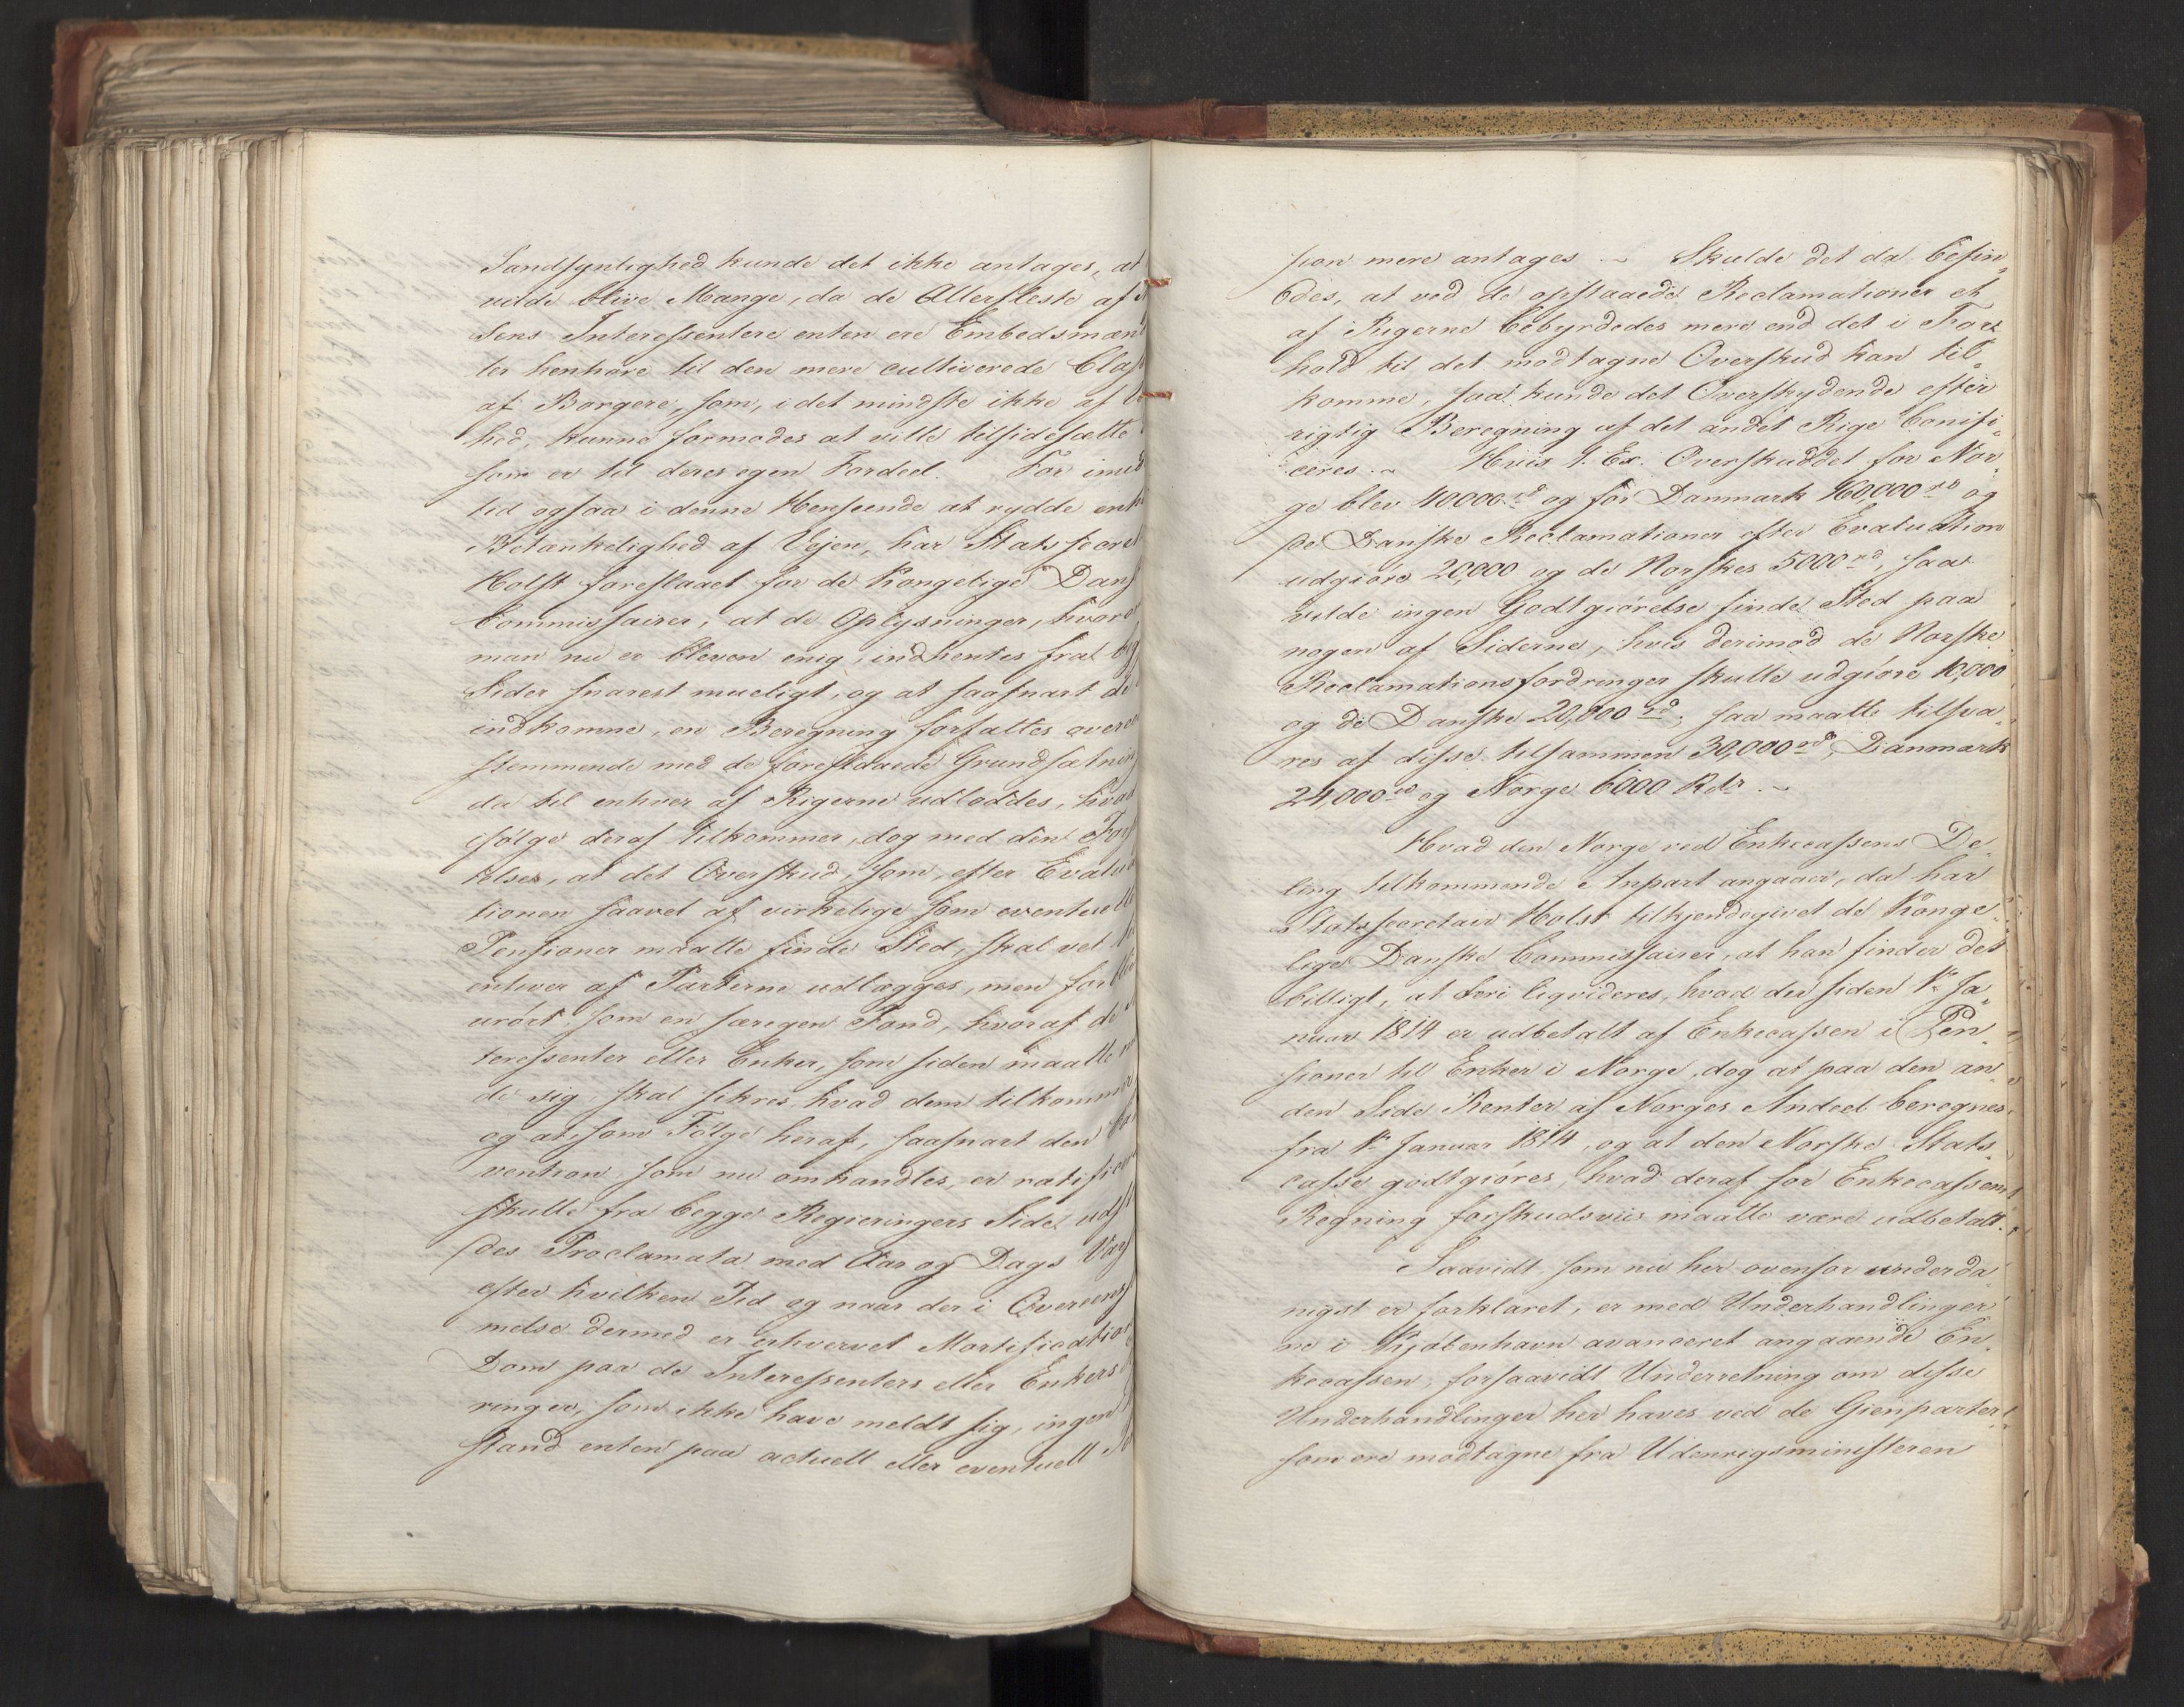 Sandsynlighed kunde det ikke antages, at
vilde blive Mange, da de Allerfleste af
sens Interessentere enten ere Embedsmæn
ler henhøre til den mere cultiverede Clas
af Borgere, som, i det mindste ikke af
hed, kunne formodes at ville tilsidesætte
som er til deres egen Fordeel. For imid
tid ogsaa i denne Henseende at rydde enh
Betænkelighed af Vejen, har Statssecret
Holst foreslaaet for de Kongelige Dans
Commissairer, at de Oplysninger, hvor
man nu er bleven enig, indhentes fra beg
Sider snarest mueligt, og at saasnart de
indkomne, en Beregning forfattes overe
stemmende med de foreslaaede Grundsætnin
da til enhver af Rigerne udloddes, hvad
ifølge deraf tilkommer, dog med den For
telse, at det Overskud, som, efter Evalu
tionen saavel af virkelige som eventuelle
Pensioner maatte finde Sted, skal vel
enhver af Parterne udlægges, men forblive
urørt som en særegen Fond, hvoraf de
teressenter eller Enker, som siden maatte
de sig, skal sikres hvad dem tilkommer
og at som Følge heraf, saasnart den Con
vention, som nu omhandles, er ratificere
skulle fra begge Regieringers Side udst
des Proclamata med Aar og Dags Vars
efter hvilken Tid og naar der i Overens
melse dermed er erhvervet Mortification
Dom paa de Interessenters eller Enkers
ringer, som ikke have meldt sig, ingen
stand enten paa actuell eller eventuell
sion mere antages ~ Skulde det da befin„
des, at ved de opstaaede Reclamationer et
af Rigerne bebyrdedes mere end det i For
hold til det modtagne Overskud kan til„
komme, saa kunde det Overskydende efter
rigtig Beregning af det andet Rige bonifi„
ceres. ~ Hvis f. Ex. Overskuddet for Nor„
ge blev 40000 rd og for Danmark 160,000 rd og
de Danske Reclamationer efter Evaluation
udgiøre 20,000 og de Norskes 5000 rd, saa
vilde ingen Godtgiørelse finde Sted paa
nogen af Siderne, hvis derimod de Norske
Reclamationsfordringer skulle udgiøre 10,000
og de Danske 20,000 rd, saa maatte tilsva„
res af disse tilsammen 30,000 rd, Danmark
24000 rd og Norge 6000 Rdr. ~
Hvad den Norge ved Enkecassens De„
ling tilkommende Anpart angaaer, da har
Statssecretair Holst tilkjendegivet de Konge„
lige Danske Commissairer, at han finder det
billigt, at deri liqvideres, hvad der siden 1te Ja„
nuar 1814 er udbetalt af Enkecassen i Pen„
sioner til Enker i Norge, dog at paa den an„
den Side Renter af Norges Andeel beregnes
fra 1te Januar 1814, og at den Norske Stats„
casse godtgiøres, hvad deraf for Enkecassens
Regning forskudsviis maatte være udbetalt.
Saavidt, som nu her ovenfor underda„
nigst er forklaret, er med Underhandlinger„
ne i Kjøbenhavn avanceret angaaende En„
kecassen, forsaavidt Underretning om disse
Underhandlinger her haves ved de Gienparter
som ere modtagne fra Udenrigsministeren